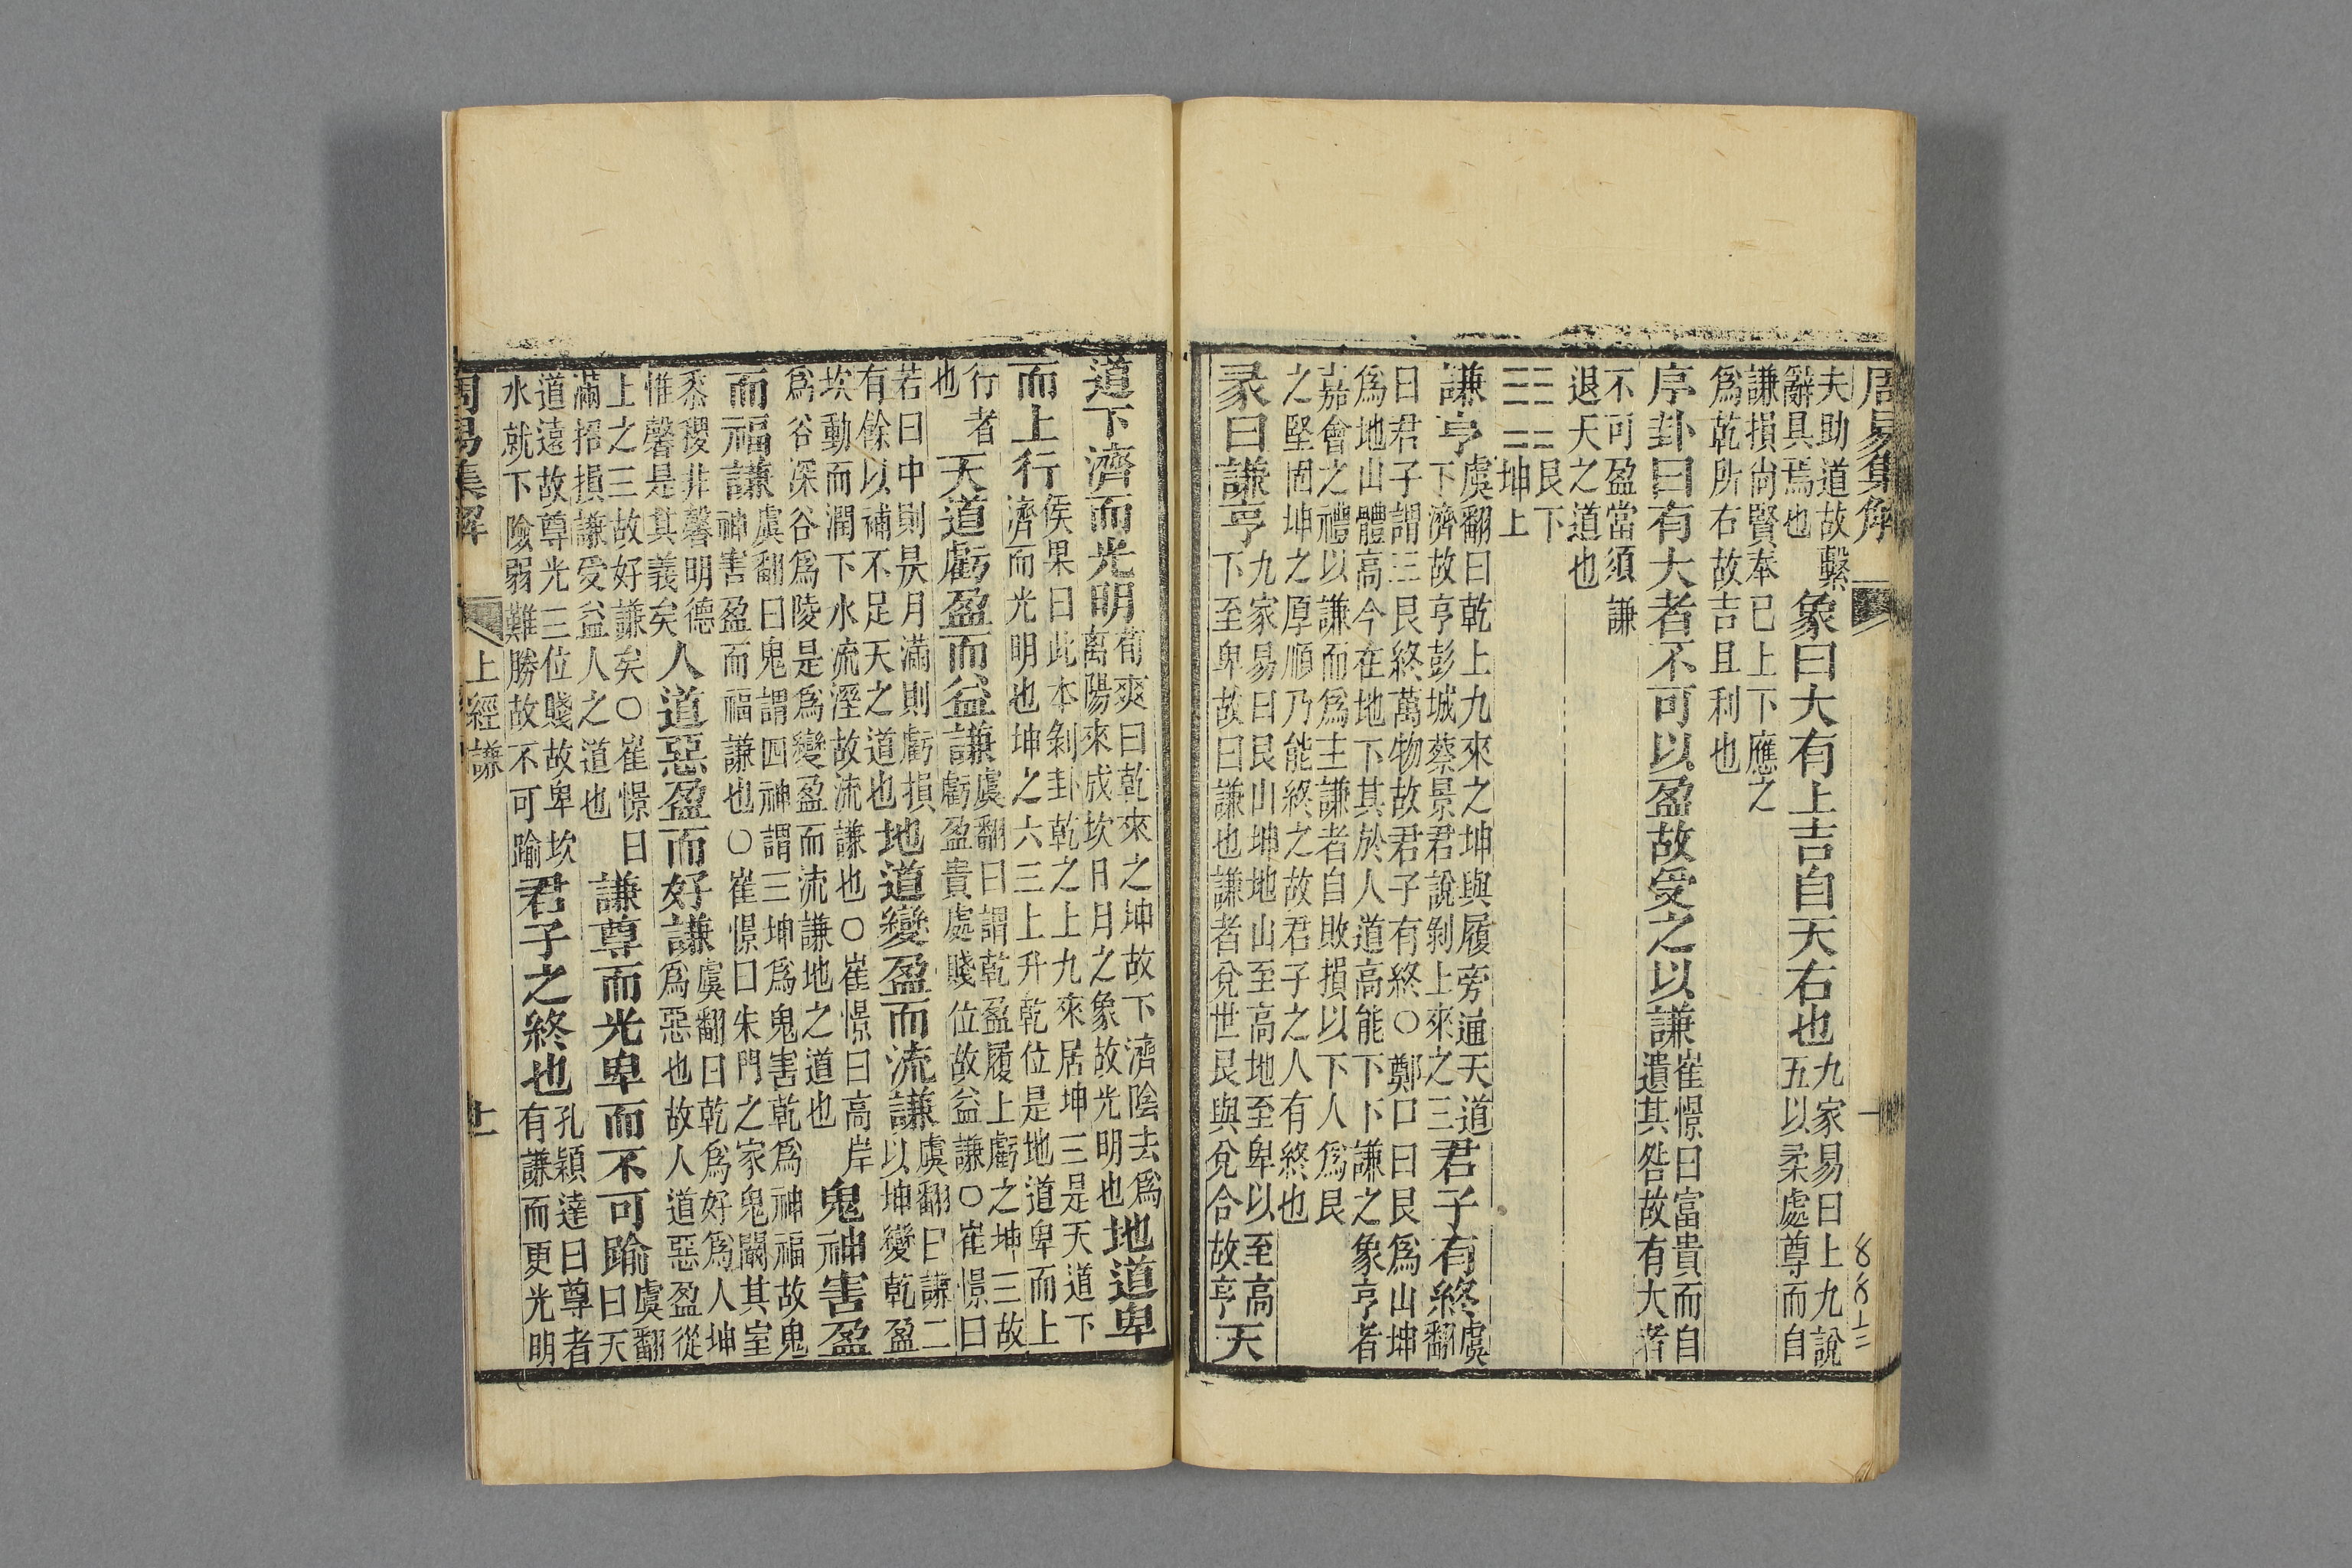 周易集解
夫助道故繫辭具焉也象曰大有上吉自天右也九家易曰上九說五以柔處尊而自
謙損尚賢奉已上下應之爲乾所右故吉且利也
序卦曰有大者不可以盈故受之以謙崔憬曰富貴而自遺其咎故有大者
不可盈當須謙退天之道也
艮下坤上
謙亨虞翻曰乾上九來之坤與履旁通天道下濟故亨彭城蔡景君說剝上來之三君子有終虞翻
曰君子謂三艮終萬物故君子有終○鄭口曰艮爲山坤爲地山體高今在地下其於人道高能下下謙之象亨者
嘉會之禮以謙而爲主謙者自敗損以下人爲艮之堅固坤之厚順乃能終之故君子之人有終也
彖曰謙亨九家易曰艮山坤地山至高地至卑以至高下至卑故曰謙也謙者兌世艮與兌合故亨天
道下濟而光明荀爽曰乾來之坤故下濟陰去爲離陽來成坎日月之象故光明也地道卑
而上行侯果曰此本剝卦乾之上九來居坤三是天道下濟而光明也坤之六三上升乾位是地道卑而上
行者也天道虧盈而益謙虞翻曰謂乾盈履上虧之坤三故虧盈貴處賤位故益謙○崔憬曰
若日中則昃月滿則虧損有餘以補不足天之道也地道變盈而流謙虞翻曰謙二以坤變乾盈
坎動而潤下水流溼故流謙也○崔憬曰高岸爲谷深谷爲陵是爲變盈而流謙地之道也鬼神害盈
而福謙虞翻曰鬼謂四神謂三坤爲鬼害乾爲神福故鬼神害盈而福謙也○崔憬曰朱門之家鬼闞其室
黍稷非馨明德惟馨是其義矣人道惡盈而好謙虞翻曰乾爲好爲人坤爲惡也故人道惡盈從
上之三故好謙矣○崔憬曰滿招損謙受益人之道也謙尊而光卑而不可踰虞翻曰天
道遠故尊光三位賤故卑坎水就下險弱難勝故不可踰君子之終也孔穎達曰尊者有謙而更光明
周易集解 上經 謙 十一